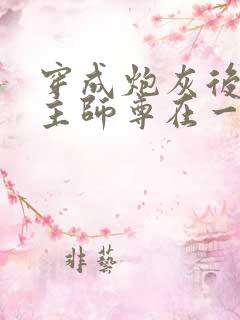 穿成炮灰後
主師尊在一
非藝